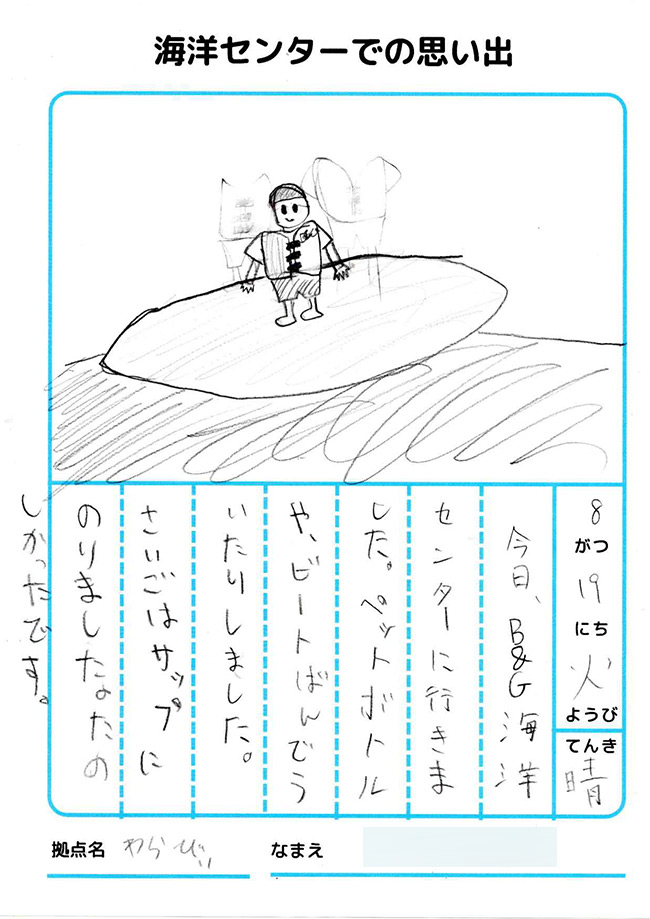 海洋センターでの思い出
8がつ19にち火ようび
てんき晴
今日、B&G海洋
センターに行きま
した。ペットボトル
や、ビートばんでう
いたりしました。
さいごはサップに
のりました。たの
しかったです。
拠点名 わらびぃ
なまえ